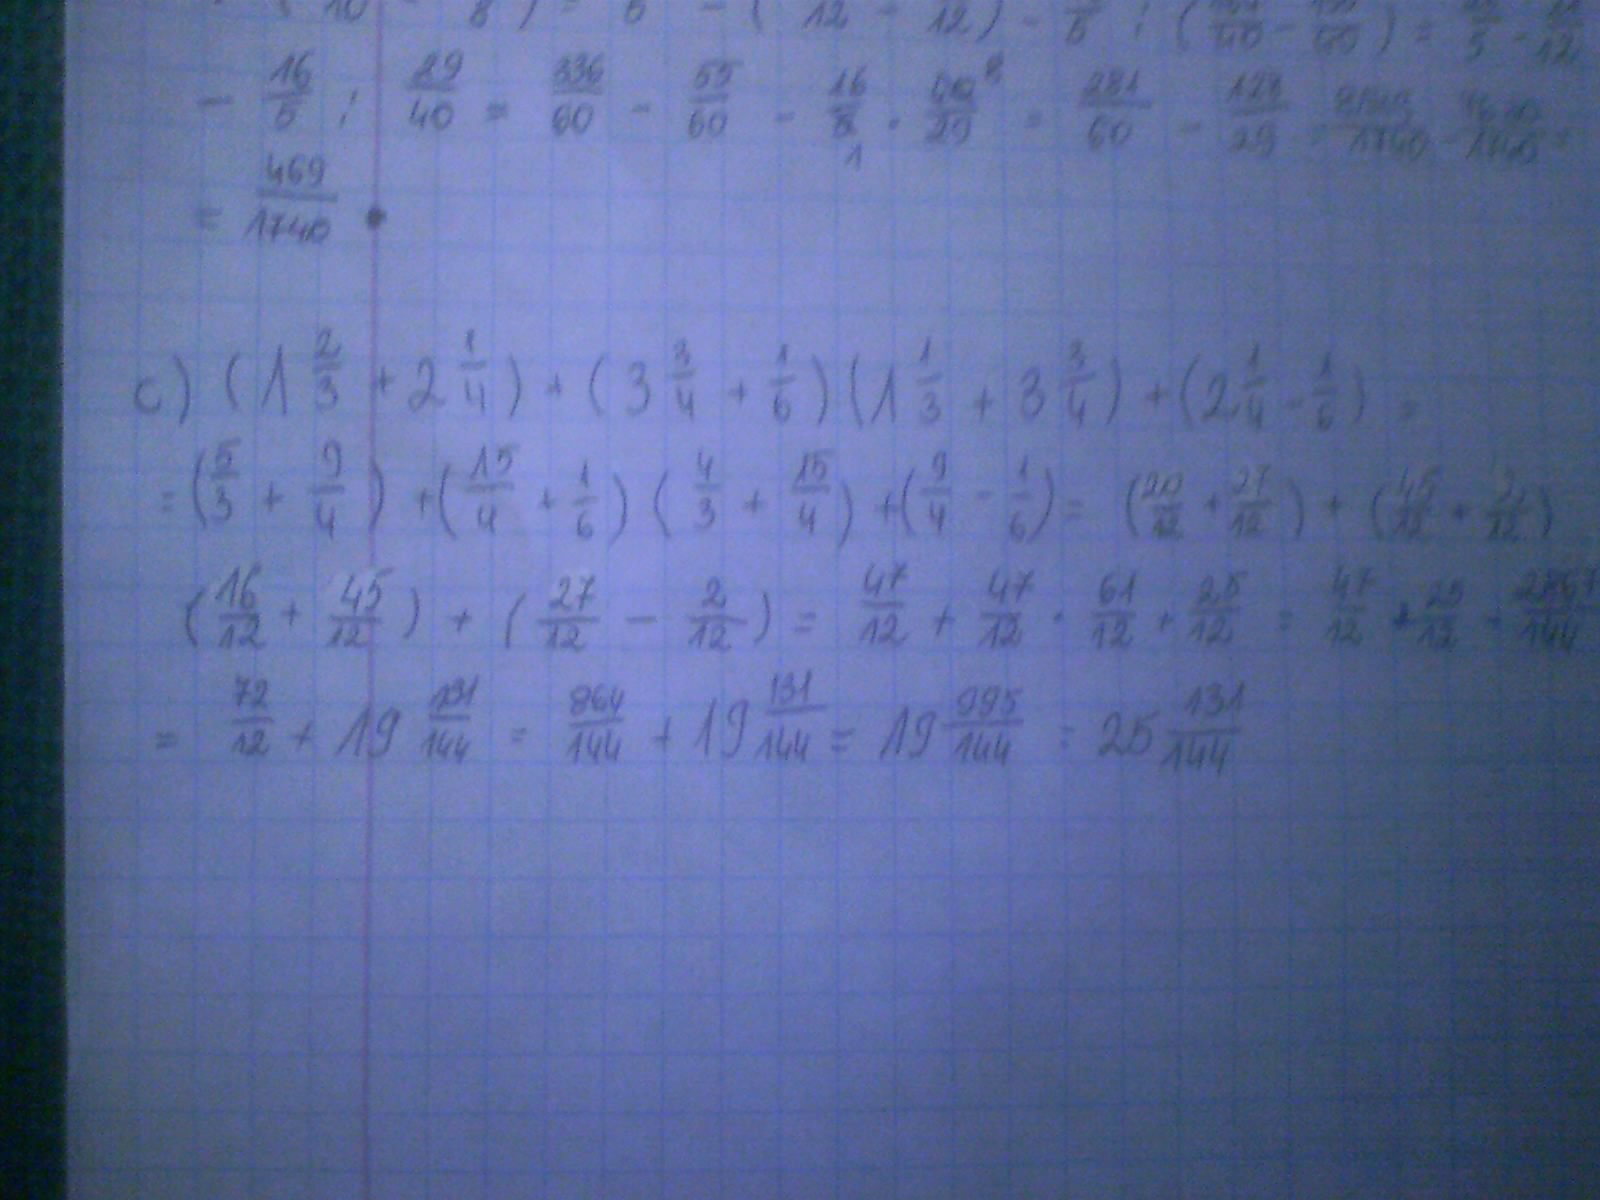 - 16/5 : 29/40 = 336/60 - 55/60 - 16/5 · 40/29 = 281/60 - 128/29 =
= 469/1740
c) (1 2/3 + 2 1/4) + (3 3/4 + 1/6) (1 1/3 + 3 3/4) + (2 1/4 - 1/6) =
= (5/3 + 9/4) + (15/4 + 1/6) (4/3 + 15/4) + (9/4 - 1/6) = (20/12 + 27/12) + (45/12 + 2/12)
(16/12 + 45/12) + (27/12 - 2/12) = 47/12 + 47/12 · 61/12 + 25/12 = 47/12 + 25/12 + 2867/144
= 72/12 + 19 131/144 = 864/144 + 19 131/144 = 19 995/144 = 25 131/144